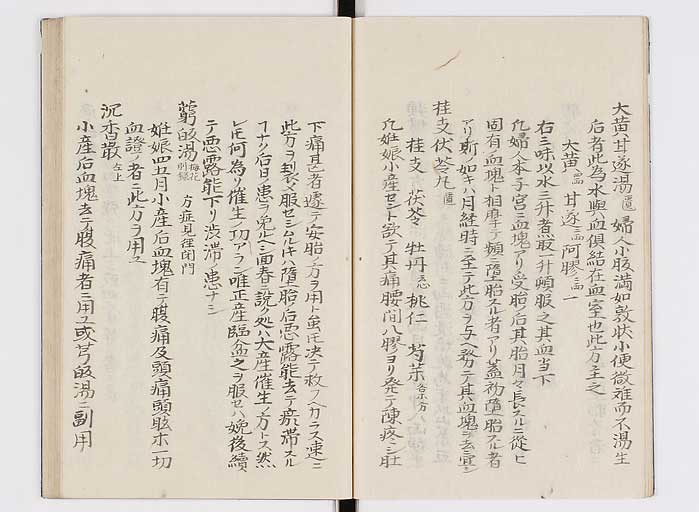 大黄甘遂湯 匱 婦人小腹満如敦状小便微難而不渇生
后者此為水與血倶結在血室也此方主之
大黄 甘遂 阿膠
右三味以水三升煮取一升頓服之其血当下
凡婦人本子宮ニ血塊アリ受胎ノ后其胎月々長スルニ従ヒ
固有ノ血塊ト相摩テ頻ニ堕胎スル者アリ蓋初堕胎スル者
アリ斯ノ如キハ月経時ニ至テ此方ヲ与ヘ努テ其血塊ヲ去ニ宜シ
桂支伏苓丸 匱
桂支 茯苓 牡丹 去心 桃仁 芍薬 各等分
凡妊娠小産セント欲テ其痛腰間八膠ヨリ発テ陳疼シ肚
下痛甚者遽テ安胎ノ方ヲ用ト虽𪜈决テ救フヘカラス速ニ
此方ヲ製乄服セシムルキハ堕胎后悪露能去テ瘀滞スル
ナク后日ノ患ヲ免ルヘシ面春ニ説ク処ハ大産催生ノ方トス然
レ𪜈何為ソ催生ノ功アラン唯正産臨盆之ヲ服セハ娩後續
テ悪露能下リ渋滞ノ患ナシ
芎皈湯 梅花別録 方症見徑閉門
妊娠四五月小産后血塊有テ腹痛及頭痛頭眩ホ一切
血證ノ者ニ此方ヲ用ユ
沉香散 左上
小産后血塊去テ腹痛者ニ用ユ或芎皈湯ニ副用